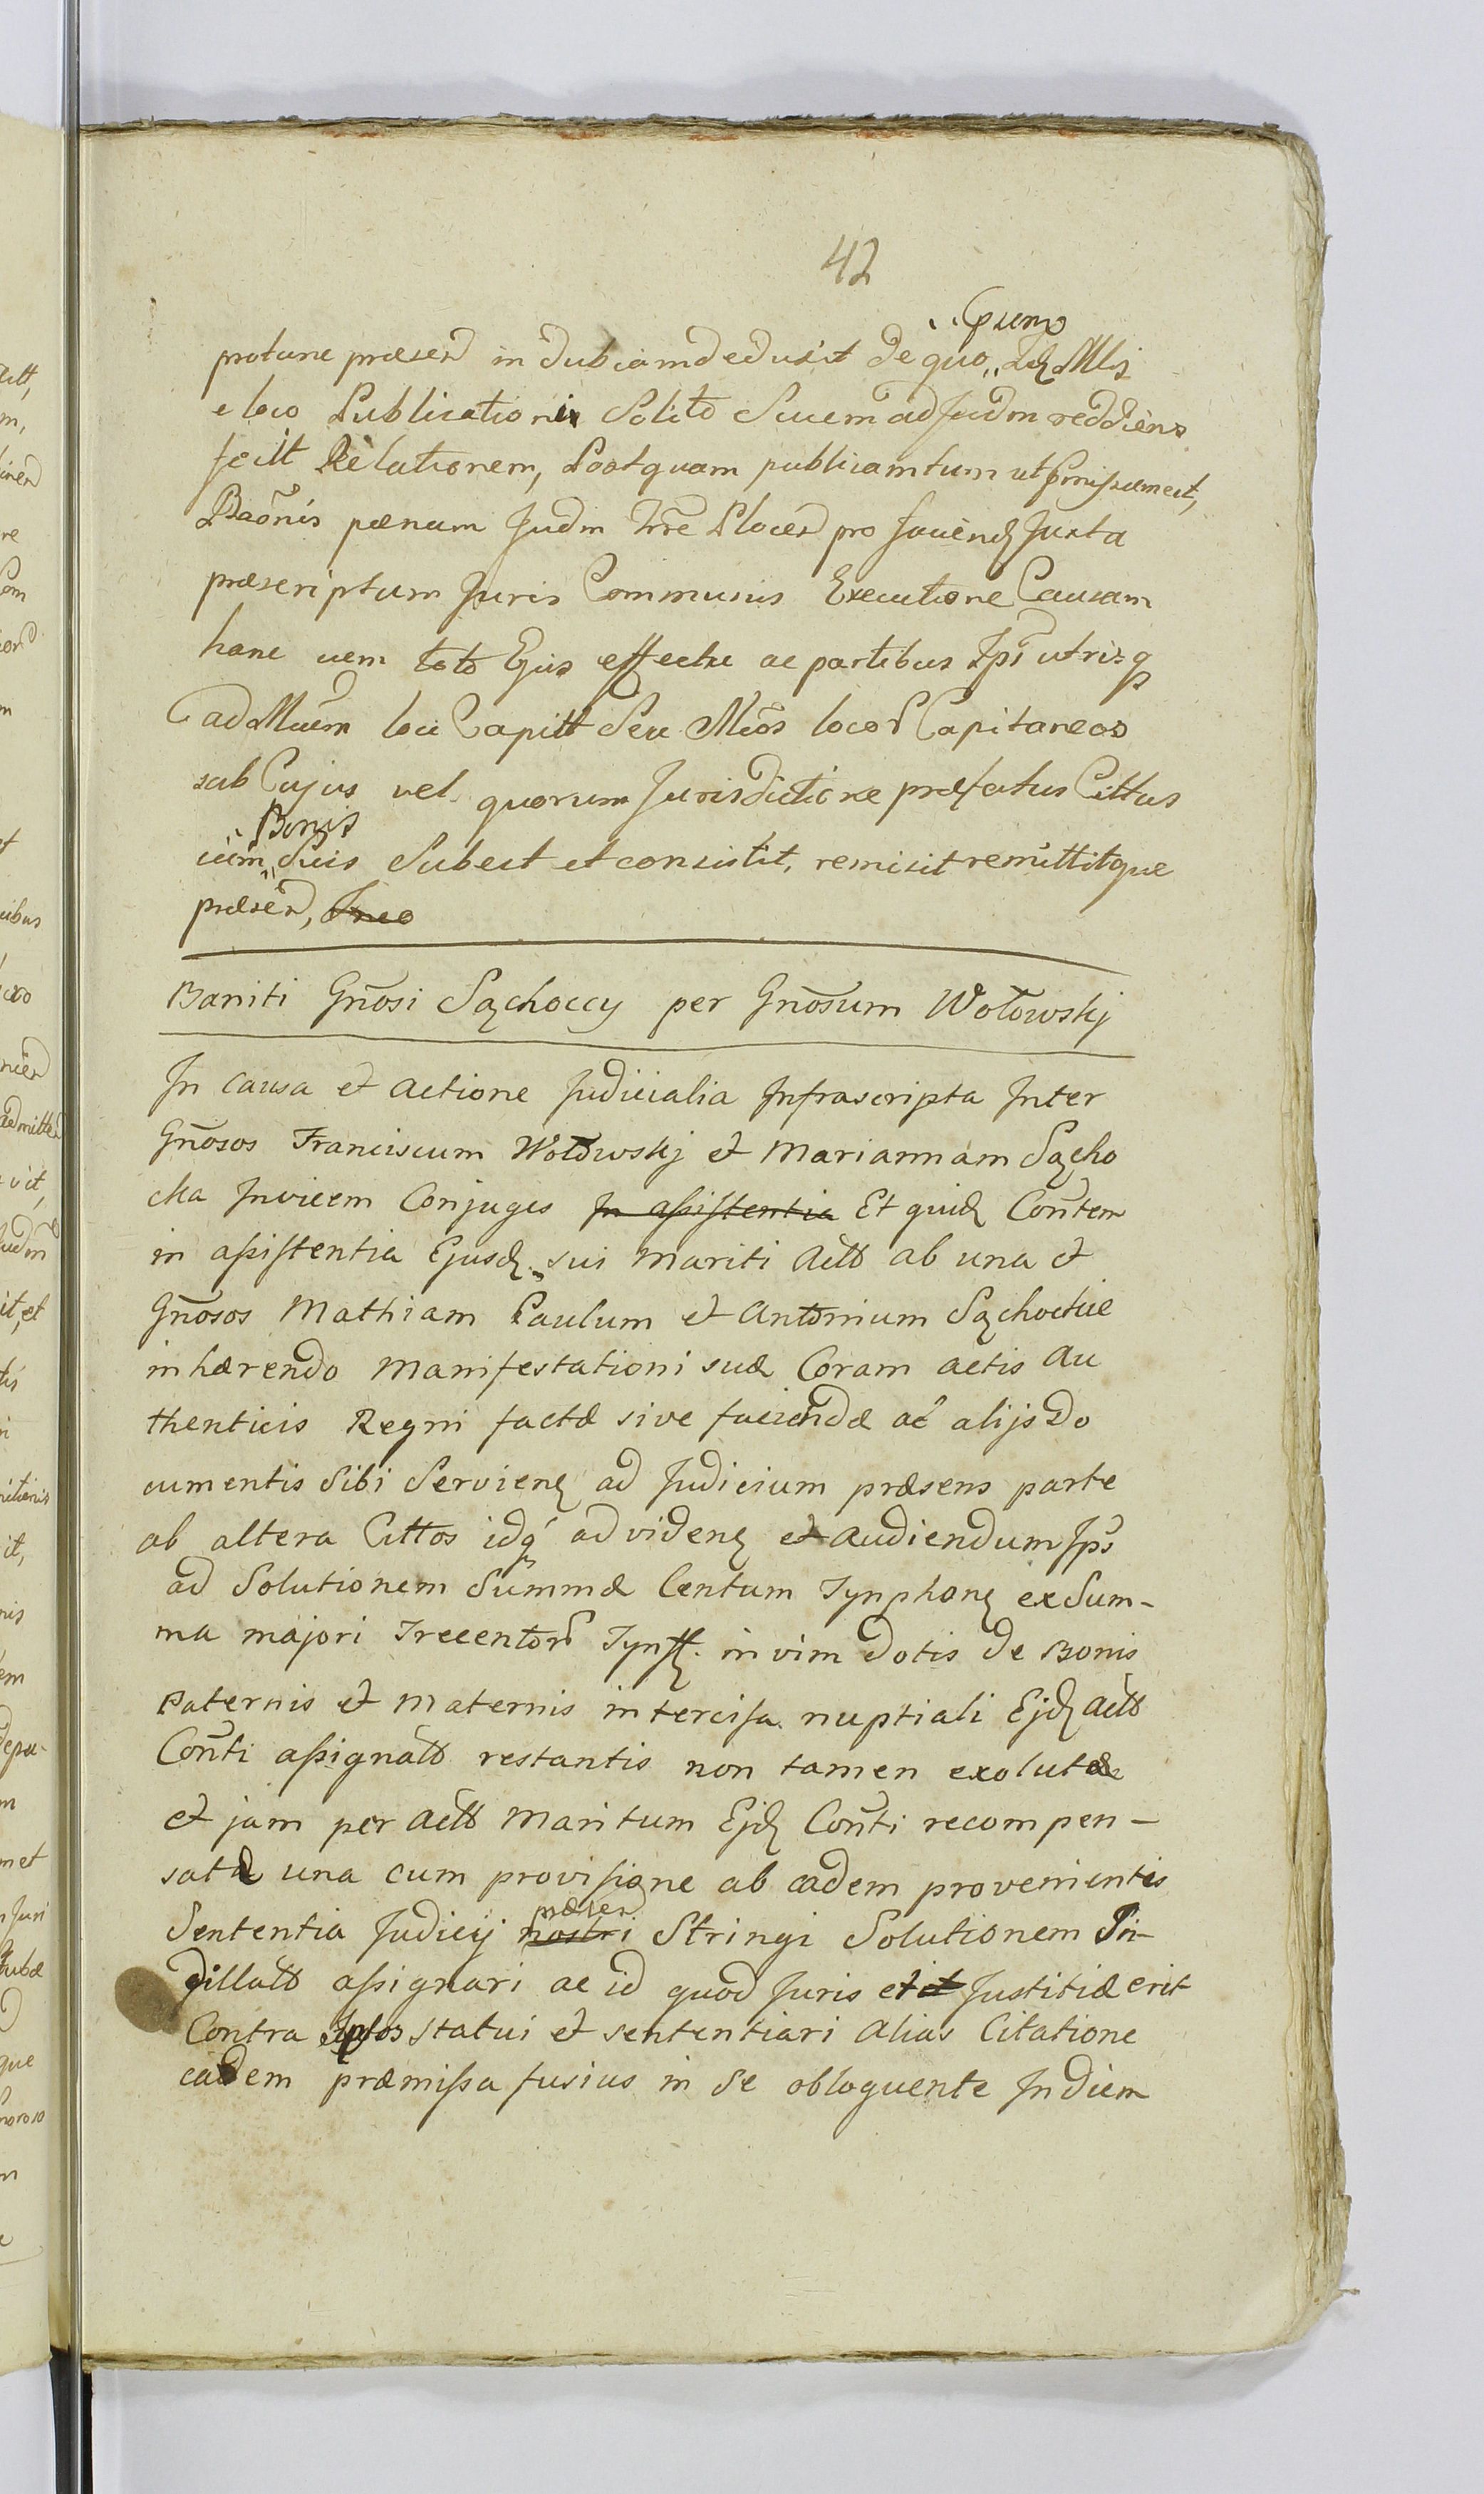 42
præmo
protunc præsen in dubiam deduxit de quo Mlis
e loco Publicationis Solito Suem ad Judm reddiens
fecitt Relationem, Postquam publicamtum ut præmissum est,
Baõnis pænam Judm Trre Plocen pro faciend Juxta
præscriptum Juris Communis Executione Causam
hanc uem toto Ejus effectu ac partibus Ips utrisq
ad Mucm loci Capitt Seu Mcos locor Capitaneos
sub Cujus vel quorum Jurisdictione præfatus Cittus
Bonis
cum Suis Subest et consistit, remisit remittitque
præsen,
Baniti Gnosi Sączhoccy per Gnosum Wołowskj
In causa et actione Judicialia Infrascripta Inter
Gnosos Franciscum Wołowskj et Mariannam Sącho
cka Invicem Conjuges In assistentia Et quid Contem
in assistentia Ejusd sui Mariti Actt ab una et
Gnosos Mathiam Paulum et Antonium Sąchockie
inhærendo Manifestationi suæ Coram actis Au
thenticis Regni factæ sive faciendæ ac alijs Do
cumentis Sibi Servien ad Judicium præsens parte
ab altera Cittos idq ad viden et audiendum Ips
ad Solutionem Summæ Centum Tynphon ex Sum-
ma majori Trecentor Tynff. in vim dotis de Bonis
Paternis et Maternis intercisa nuptiali Ejd Actt
Conti assignatt restantis non tamen exolutæ
et jam per Actt Maritum Ejd Conti recompen-
satæ una cum provisione ab eadem provenientis
præsen
Sententia Judicij nostri Stringi Solutionem In-
dillatt assignari ac id quod Juris et Justitiæ erit
Contra Ipsos statui et sententiari alias Citatione
eadem præmissa fusius in se obloquente In diem